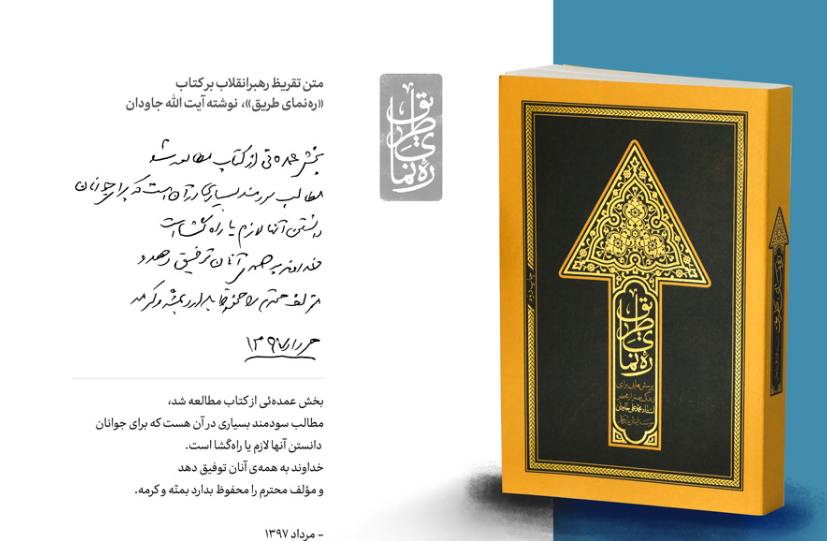 متن تقریظ رهبرانقلاب بر کتاب
«ره‌نمای طریق»، نوشته آیت الله جاودان
ره‌نمای طریق
بخش عمده‌ئی از کتاب مطالعه شد
مطالب سودمند بسیاری در آن است که برای جوانان
دانستن آنها لازم یا راه‌گشا است
خداوند به همه‌ی آنان توفیق دهد و
مؤلف محترم را محفوظ بدارد بمنّه و کرمه
مرداد ۱۳۹۷
بخش عمده‌ئی از کتاب مطالعه شد،
مطالب سودمند بسیاری در آن هست که برای جوانان
دانستن آنها لازم یا راه‌گشا است.
خداوند به همه‌ی آنان توفیق دهد
و مؤلف محترم را محفوظ بدارد بمنّه و کرمه.
- مرداد ۱۳۹۷
ره‌نمای طریق